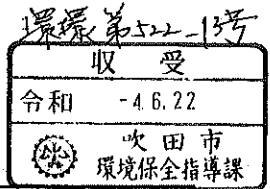 環環第522-13号
収受
令和 -4.6.22
吹田市
環境保全指導課